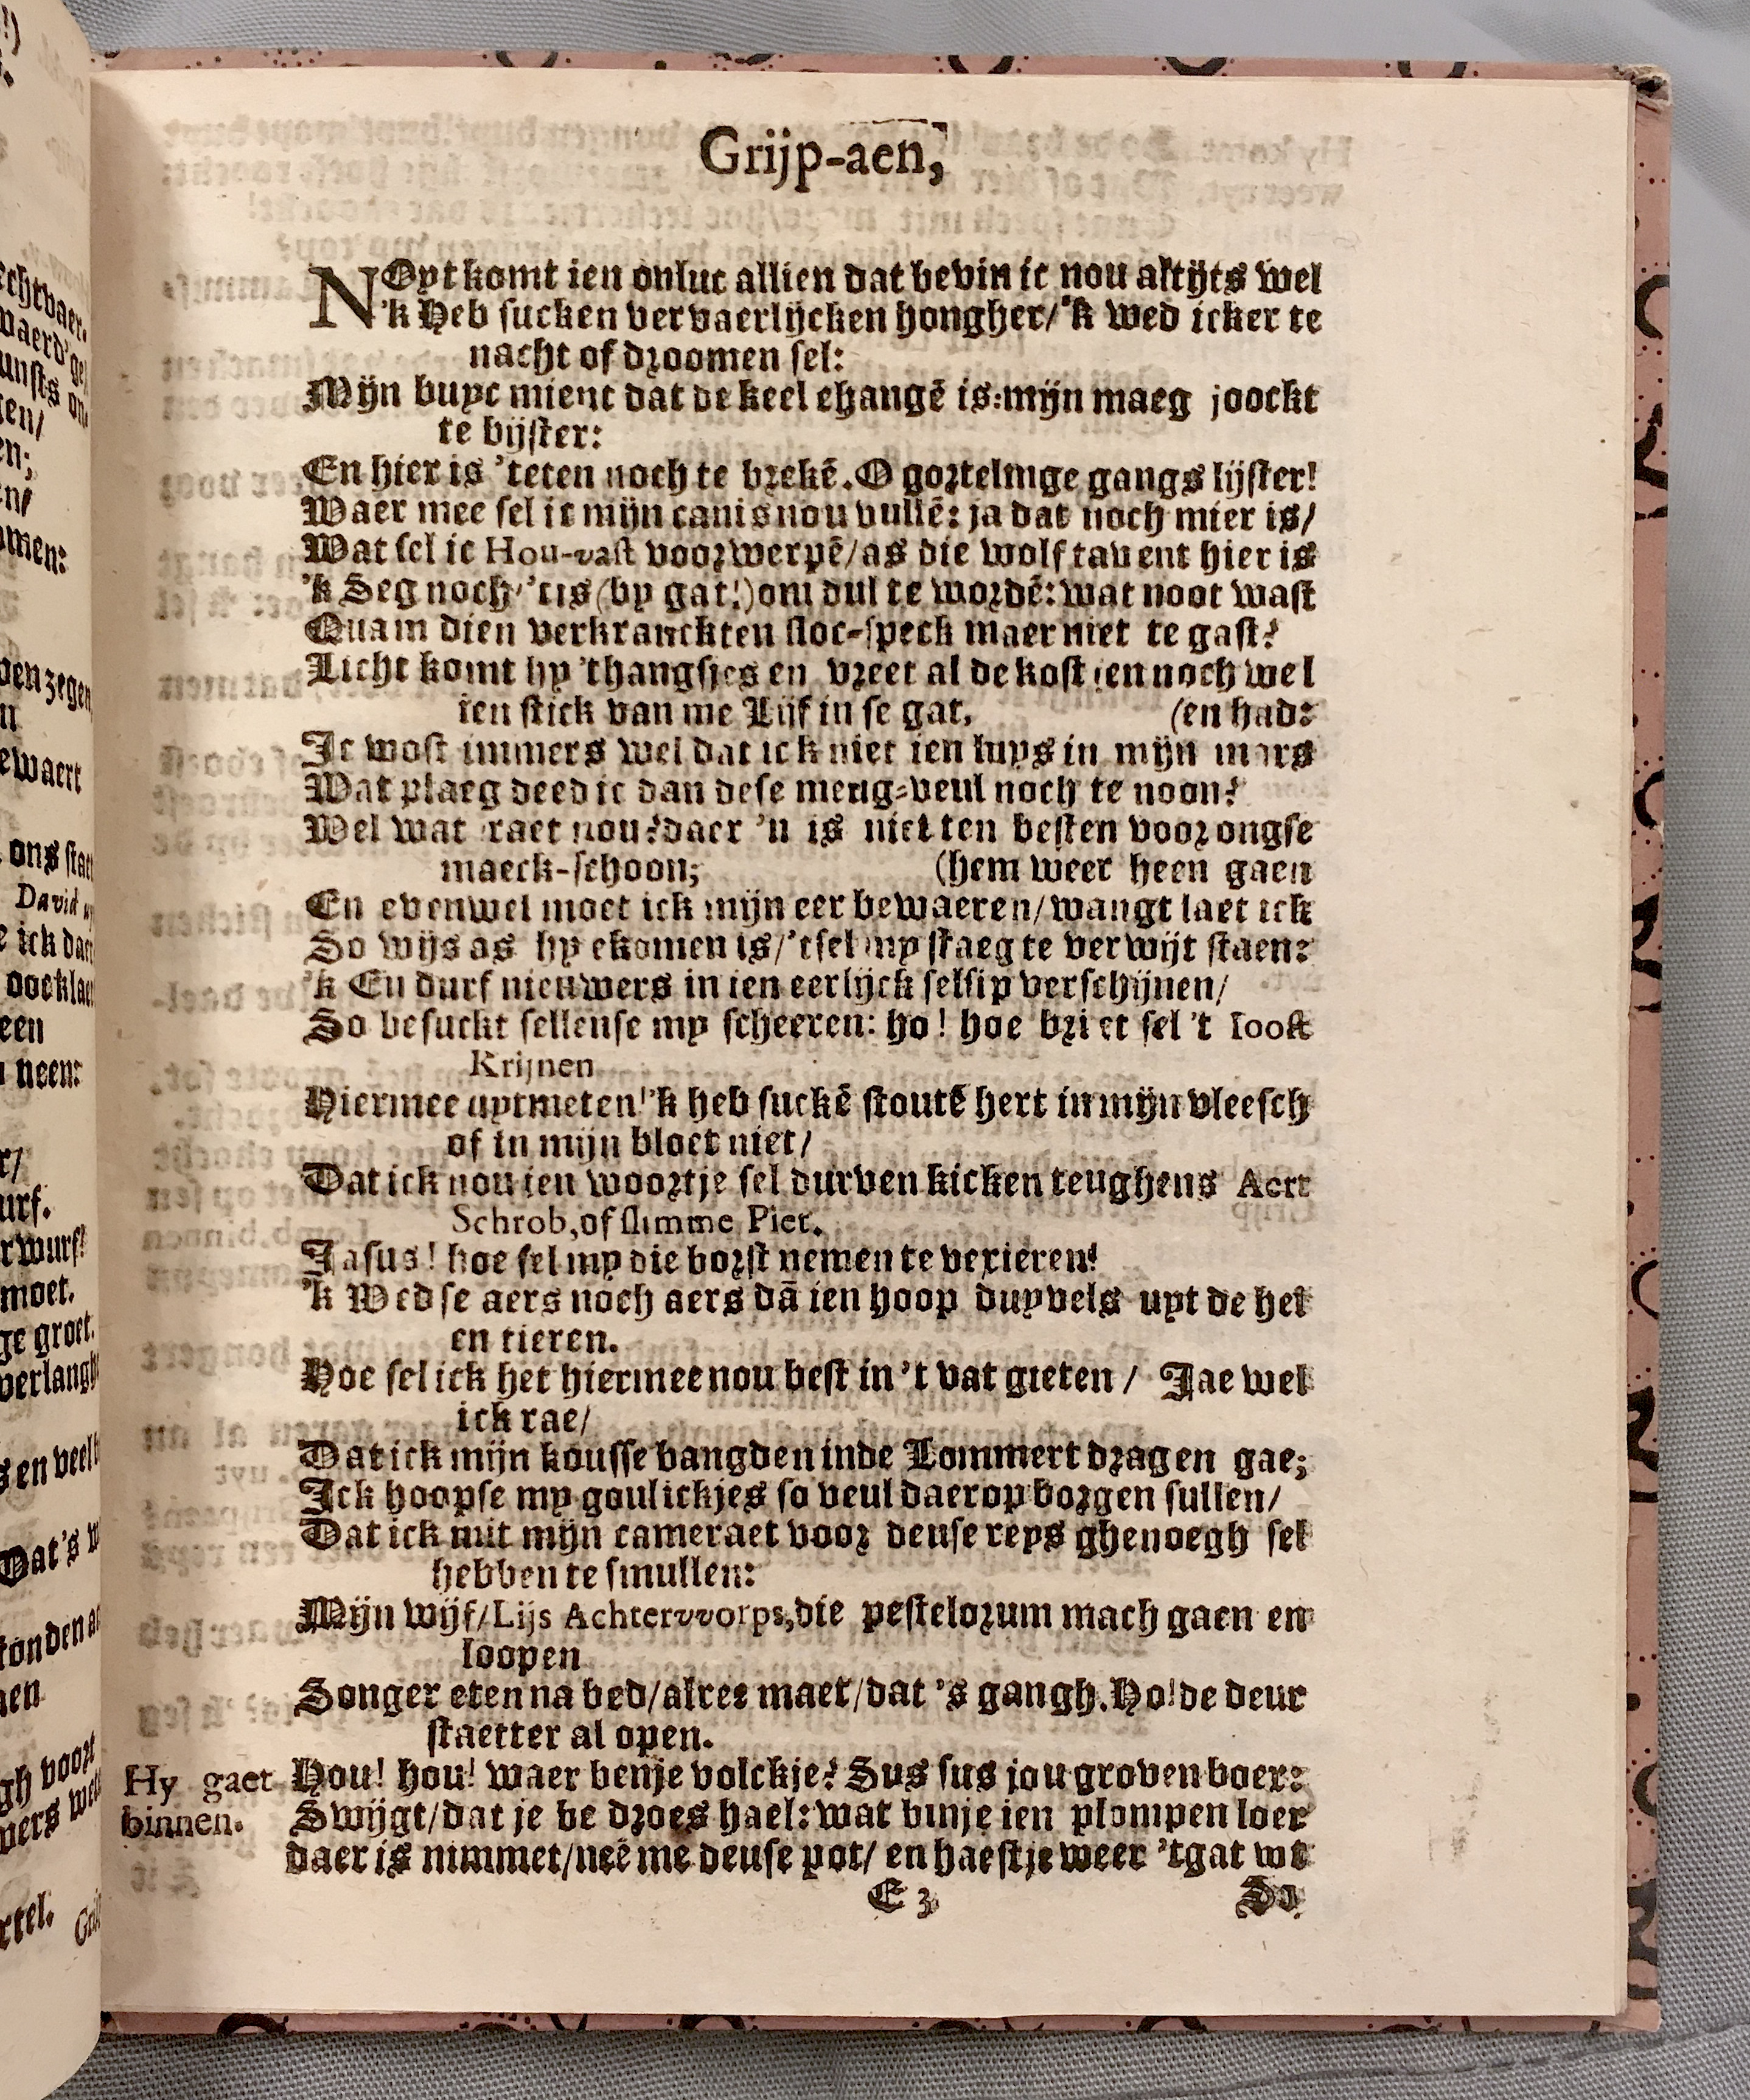 Grijp-aen,
NOyt komt ien onluc allien dat bevin ic nou altijts wel
'k Heb sucken vervaerlijcken hongher/'k wed icker te
nacht of droomen sel:
Mijn buyc mient dat de keel ehangē is: mijn maeg joockt
te bijster:
En hier is 'teten noch te brekē. O gortelinge gangs lijster!
Waer mee sel ic mijn canis nou vullē: ja dat noch mier is/
Wat sel ic Hou-vast voorwerpē/as die wolf tavent hier is
'k Seg noch/'tis (by gat!) om dul te wordē: wat noot wast
Quam dien verkranckten sloc-speck maer niet te gast?
Licht komt hy 'thangsjes en vreet al de kost ien noch wel
ien stick van me Lijf in se gat, (en had:
Ic wost immers wel dat ick niet ien luys in mijn mars
Wat plaeg deed ic dan dese meng-veul noch te noon?
Wel wat raet nou? daer 'n is niet ten besten voor ongse
maeck-schoon; (hem weer heen gaen
En evenwel moet ick mijn eer bewaeren/wangt laet ick
So wijs as hy ekomen is/'tsel my staeg te verwijt staen:
'k En durf nieuwers in ien eerlijck selsip verschijnen/
So besuckt sellense my scheeren: ho! hoe briet sel 't Ioost
Krijnen
Hiermee uytmeten! 'k heb suckē stoutē hert in mijn vleesch
of in mijn bloet niet/
Dat ick nou ien woortje sel durven kicken teughens Aert
Schrob, of slimme Piet.
Jasus! hoe sel my die borst nemen te vexieren!
'k Wed se aers noch aers dā ien hoop duyvels uyt de hel
en tieren.
Hoe sel ick het hiermee nou best in 't vat gieten / Jae wel
ick rae/
Dat ick mijn kousse bangden inde Lommert dragen gae;
Ick hoopse my goulickjes so veul daerop borgen sullen/
Dat ick mit mijn cameraet voor deuse reys ghenoegh sel
hebben te smullen:
Mijn wijf/Lijs Achtervvorps, die pestelorum mach gaen en
loopen
Songer eten na bed/alree maer/dat 's gangh. Ho! de deur
staetter al open.
Hy gaet binnen.
Hou! hou! waer benje volckje? Sus sus jou groven boer:
Swijgt/dat je de droes hael: wat binje ien plompen loer
daer is nimmet/neē me deuse pot/ en haestje weer 'tgat wt
E 3